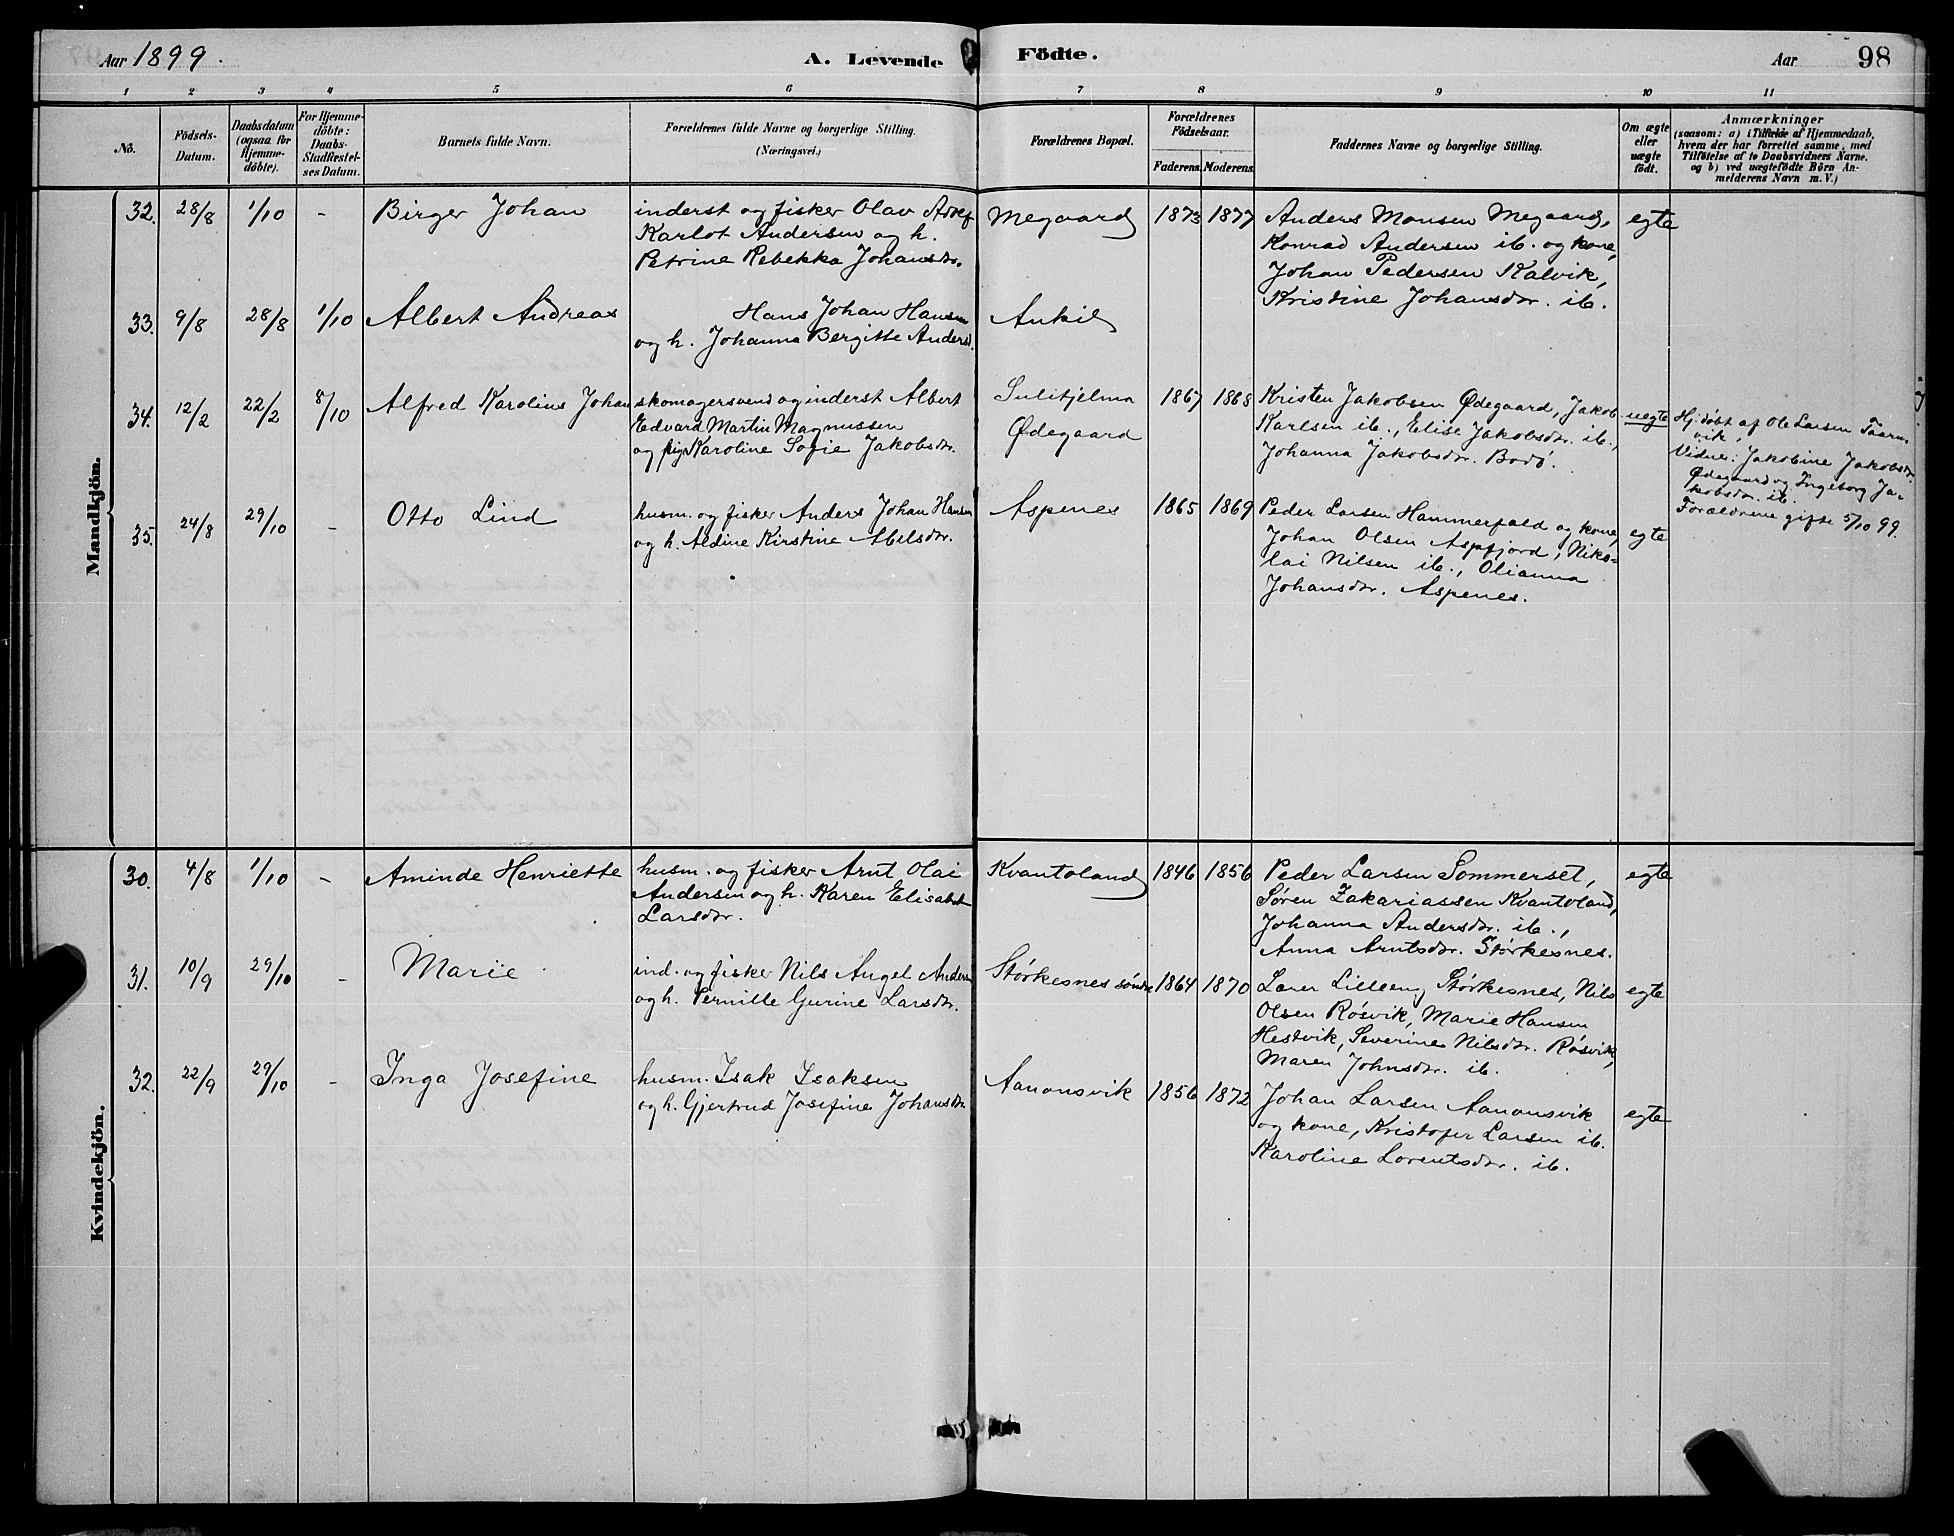 Aar 1899. A. Levende Födte. Aar 98
1 2 3 4 5 6 7 8 9 10 11
No.
Födsels-
Datum.
Daabsdatum
(ogsaa for
Hjemme-
döbte).
For Hjemme-
döbte:
Daabs-
Stadfæstel-
ses Datum.
Barnets fulde Navn.
Forældrenes fulde Navne og borgerlige Stilling.
(Næringsvei.)
Forældrenes Bopæl.
Forældrenes
Födselsaar.
Faderens. Moderens.
Faddernes Navne og borgerlige Stilling.
Om ægte
eller
uægte
födt.
Anmærkninger
(saasom: a) i Tilfælde af Hjemmedaab,
hvem der har forrettet samme, med
Tilföielse af to Daabsvidners Navne.
og b) ved uægtefödte Börn An-
melderens Navn m. V.)
Mandkjön.
32. 28/8 1/10 - Birger Johan
inderst og fisker Olav Adolf
Karlot Andersen og h.
Petrine Rebekka Johansdr.
Megaard 1873 1877
Anders Monsen Megaard,
Konrad Andersen ib. og kone,
Johan Pedersen Kalvik,
Kristine Johansdr. ib.
egte
33. 9/8 28/8 1/10 Albert Andreas
Hans Johan Hansen
og h. Johanna Bergitte Andersd.
Ankil
34. 12/2 22/2 8/10 Alfred Karolius Johan
skomagersvend og inderst Albert
Edvard Martin Magnussen
og pige Karoline Sofie Jakobsdr.
Sulitjelma
Ødegaard
1867 1868
Kristen Jakobsen Ødegaard, Jakob
Karlsen ib., Elise Jakobsdr. ib.,
Johanna Jakobsdr. Bodö.
uegte
Hj. döbt af Ole Larsen Taarn-
vik,
Vidne: Jakobine Jakobsdr.
Ødegaard og Ingeborg Ja-
kobsdr. ib.
Forældrene gifte 5/10 99.
35. 24/8 29/10 - Otto Lind
husm. og fisker Anders Johan Hansen
og h. Aldine Kirstine Abelsdr.
Aspenes 1865 1869
Peder Larsen Hammerfald og kone,
Johan Olsen Aspfjord, Niko-
lai Nilsen ib., Olianna
Johansdr. Aspenes.
egte
Kvindekjön.
30. 4/8 1/10 - Aminde Henriette
husm. og fisker Arnt Olai
Andersen og h. Karen Elisabet
Larsdr.
Kvantoland 1846 1856
Peder Larsen Sommerset,
Sören Zakariassen Kvantoland,
Johanna Andersdr. ib.,
Anna Arntsdr. Störkesnes.
egte
31. 10/9 29/10 - Marie
ind. og fisker Nils Angel Anders
og h. Pernille Gurine Larsdr.
Störkesnes söndre 1864 1870
Lærer Lilleeng Störkesnes, Nils
Olsen Rösvik, Marie Hansen
Hestvik, Severine Nilsdr. Rösvik,
Maren Johnsdr. ib.
egte
32. 22/9 29/10 - Inga Josefine
husm. Isak Isaksen
og h. Gjertrud Josefine Johansdr.
Aanonsvik 1856 1872
Johan Larsen Aanonsvik
og kone, Kristofer Larsen ib.
Karoline Lorentsdr. ib.
egte